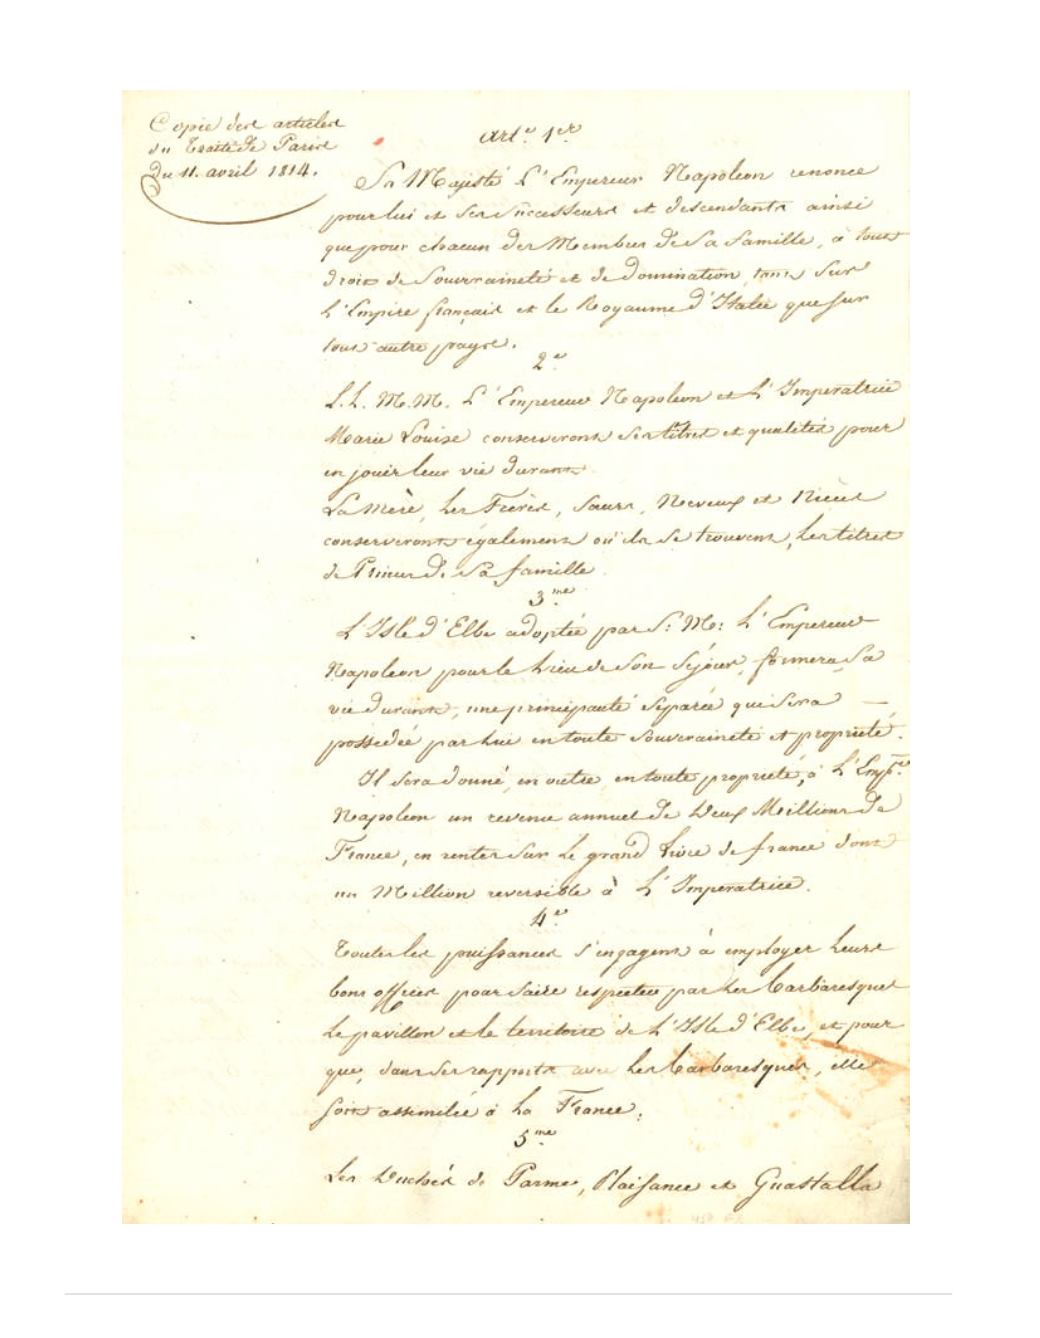 Copie des articles
du Traité de Paris
Du 11. avril 1814.
Art.e 1.er
Sa Majesté L'Empereur Napoleon renonce
pour lui et ses successeurs et descendants ainsi
que pour chacun des Membres de Sa famille, à tous
droits de Souveraineté et de domination tant Sur
L'Empire français et le Royaume d'Italie que sur
tous autre pays.
2.e
L.L. M.M. L'Empereur Napoleon et L'Imperatrice
Marie Louise conserveront ses titres et qualités pour
en jouir leur vie durante
La Mère, Les Frères, Sœurs, Neveux et Nièces
conserveront également où ils se trouvent, Les titres
de Princes de Sa famille
3.me
L'Isle d'Elbe adoptée par S: M: L'Empereur
Napoleon pour le Lieu de Son Séjour, formera, Sa
vie durante, une principauté séparée qui sera
possedée par Lui en toute souveraineté et propriété.
Il sera donné, en outre, en toute propriété, à L'Emp.r
Napoleon un revenu annuel de Deux Millions de
France, en rentes Sur Le grand Livre de france dont
un Million reversible à L'Imperatrice.
4.e
Toutes les puissances s'engagent à employer Leurs
bons offices pour faire respecter par Les Barbaresques
Le pavillon et le territoire de L'Isle d'Elbe, et pour
que, dans ses rapports avec Les Barbaresques, elle
soit assimilée à La France.
5.me
Les Duchés de Parme, Plaisance et Guastalla